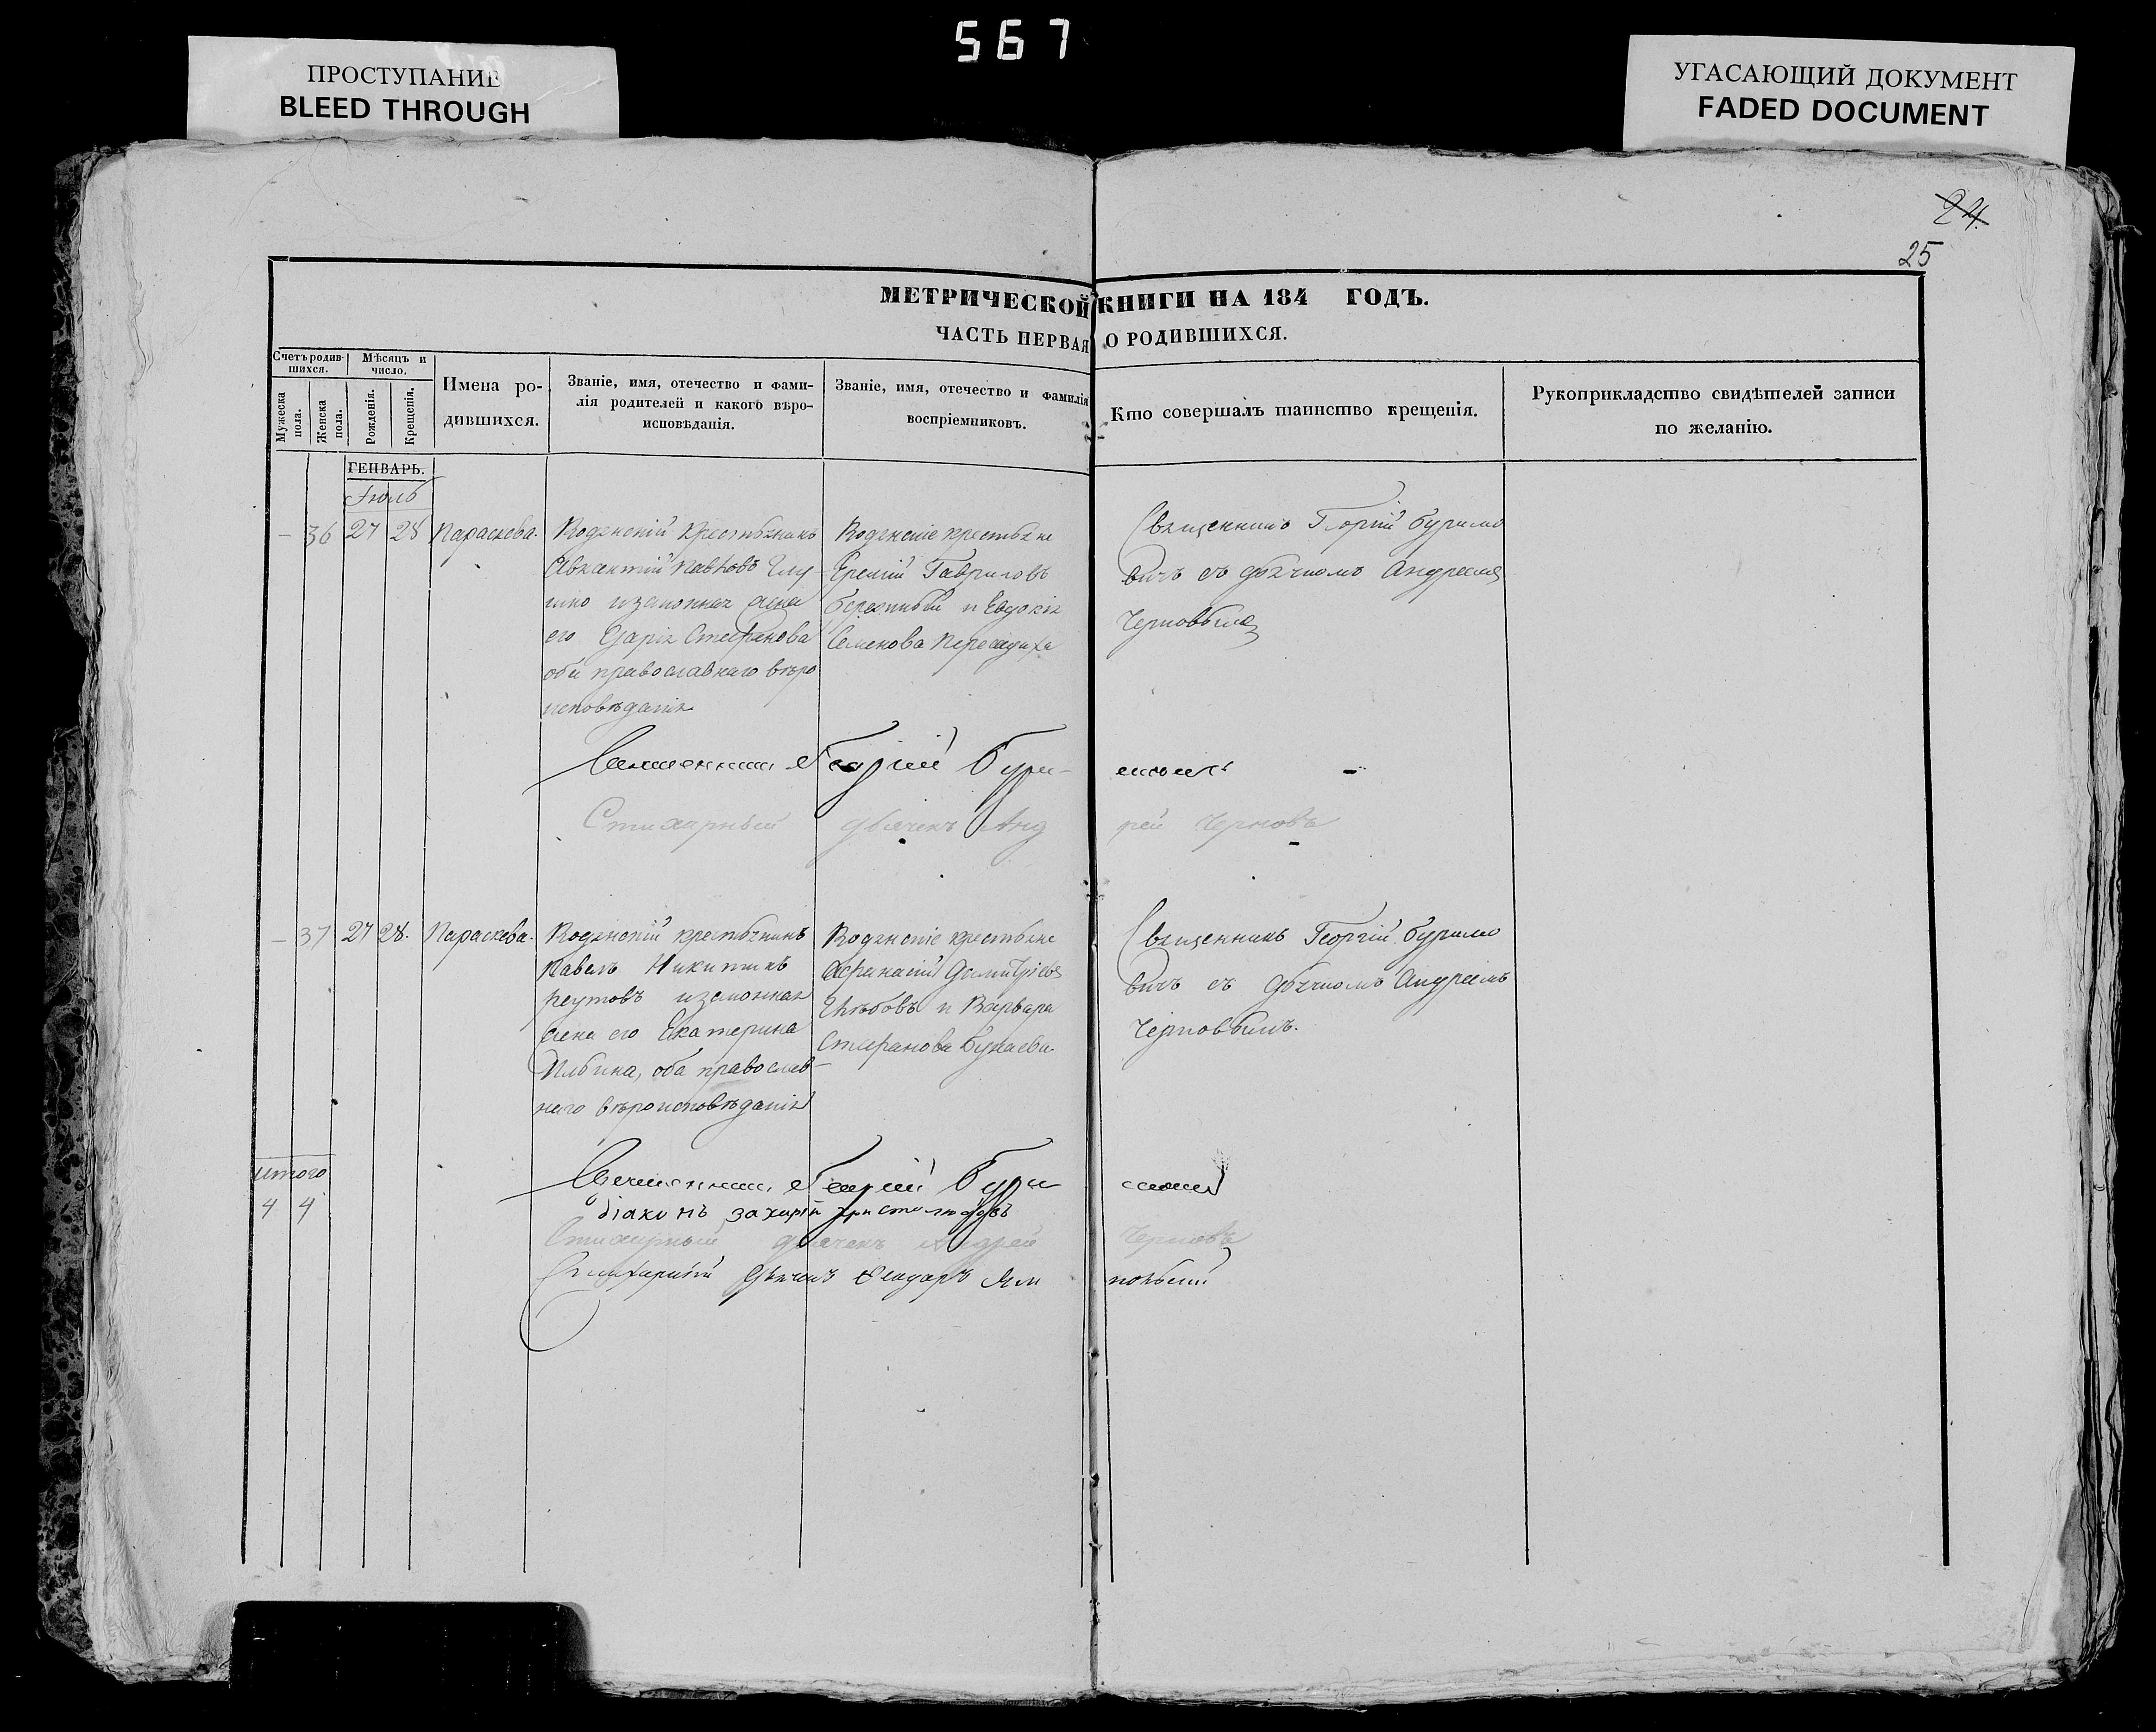 567
ПРОСТУПАНИЕ
BLEED THROUGH
УГАСАЮЩИЙ ДОКУМЕНТ
FADED DOCUMENT
24
25
МЕТРИЧЕСКОЙ КНИГИ НА 184 ГОДЪ.
ЧАСТЬ ПЕРВАЯ О РОДИВШИХСЯ.
Счетъ родив-
шихся.
Мѣсяцъ и
число.
Мужеска
пола.
Женска
пола.
Рожденія.
Крещенія.
Имена ро-
дившихся.
Званіе, имя, отечество и фами-
лія родителей и какого вѣро-
исповѣданія.
Званіе, имя, отечество и фамилія
воспріемниковъ.
Кто совершалъ таинство крещенія.
Рукоприкладство свидѣтелей записи
по желанію.
ГЕНВАРЬ.
Іюль
- 36 27 28 Параскева.
Водянскій крестьянинъ
Авксентій Павловъ
законная жена
его Марія Стефанова
оба православнаго вѣро
исповѣданія
Водянскіе крестьяне
Еремій Гавриловъ
и Евдокія
Семенова
Священникъ Георгій Буримо
вичъ съ дьячкомъ Андреемъ
Черновымъ
Священникъ Георгій Бури-
мовичъ
Стихарный дьячекъ Анд
рей Черновъ
- 37 27 28. Параскева.
Водянскій крестьянинъ
Павелъ Никитинъ
Реутовъ и законная
жена его Екатерина
Ильина, оба православ-
наго вѣроисповѣданія
Водянскіе крестьяне
Афанасій Димитріевъ
Глѣбовъ и Варвара
Стефанова Бунаева
Священникъ Георгій Буримо
вичъ съ дьячкомъ Андреемъ
Черновымъ.
итого
4 4
Священникъ Георгій Бури
мовичъ
діаконъ Захарій Христолюбовъ
Стихарный дьячекъ Андрей Черновъ
Стихарный дьячекъ